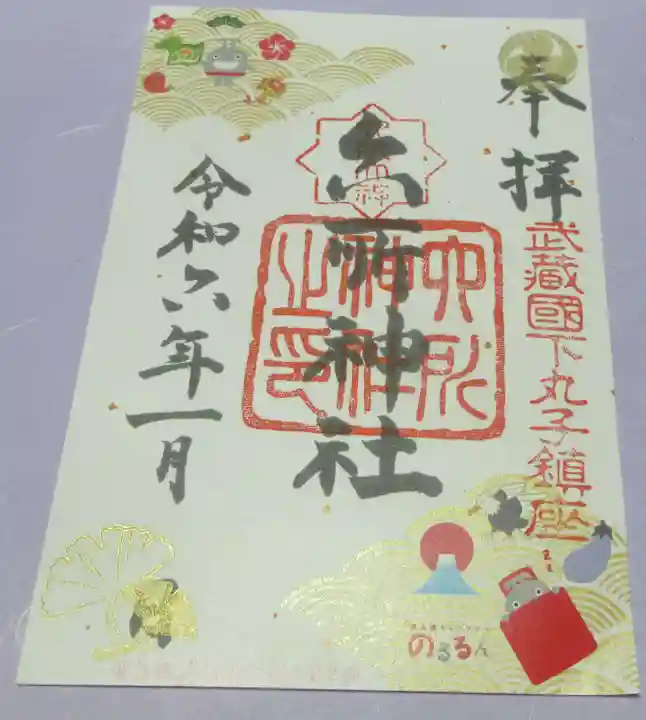 奉拝
武蔵國下丸子鎮座
六所神社
六所神社之印
令和六年一月
のるるん